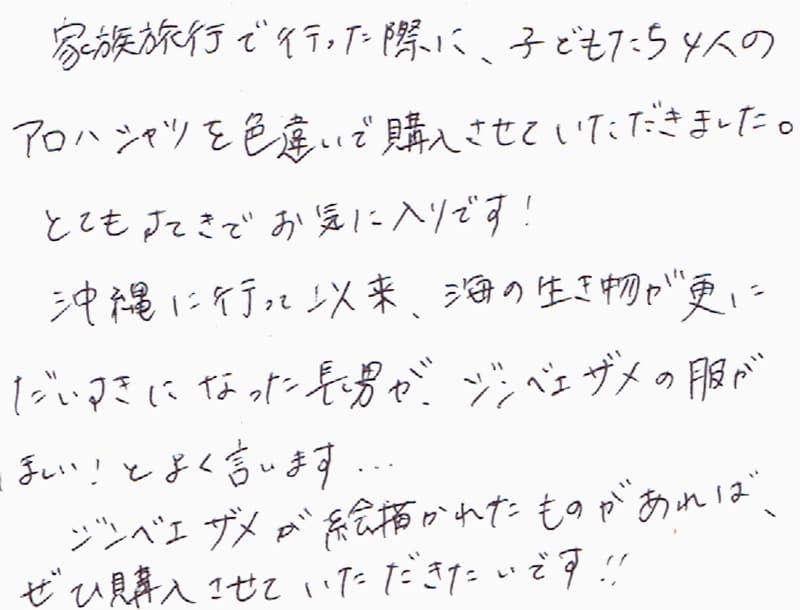 家族旅行で行った際に、子どもたち4人の
アロハシャツを色違いで購入させていただきました。
とてもすてきでお気に入りです!
沖縄に行って以来、海の生き物が更に
だいすきになった長男が、ジンベエザメの服が
ほしい!とよく言います...
ジンベエザメが絵描かれたものがあれば、
ぜひ購入させていただきたいです!!